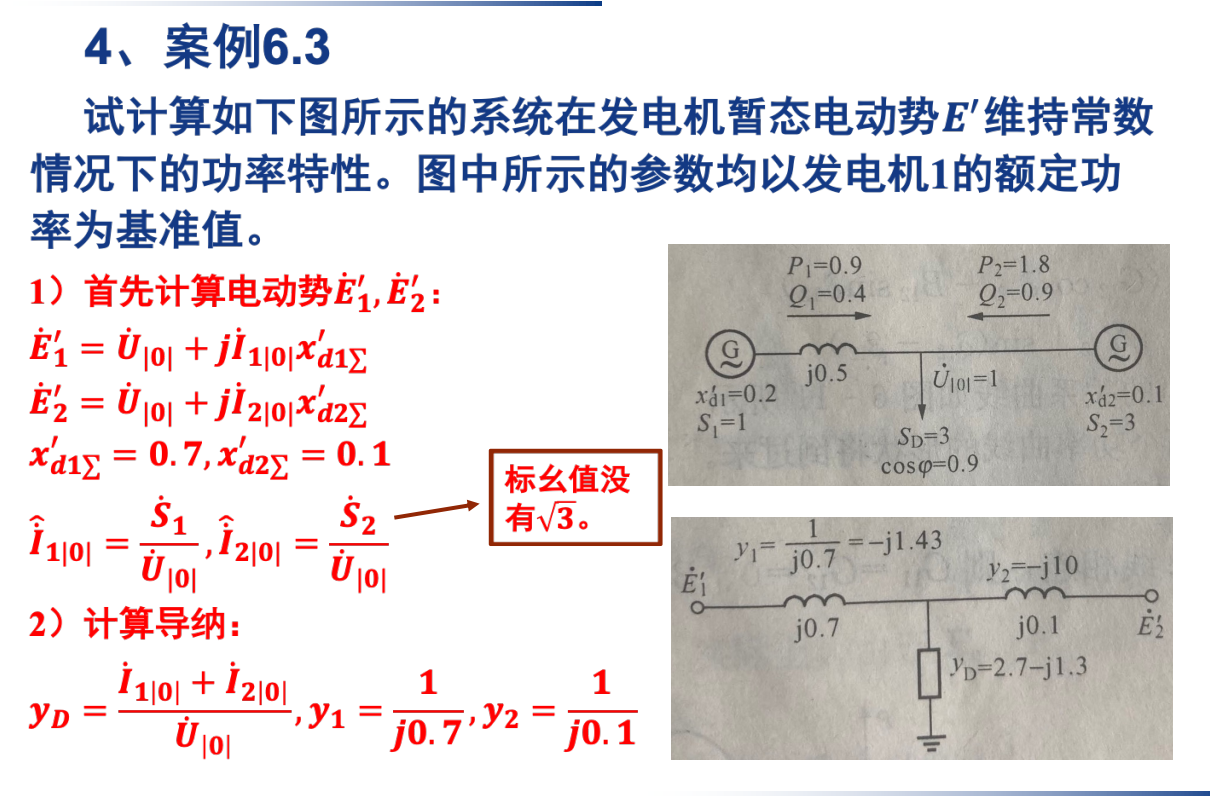 4、案例6.3
试计算如下图所示的系统在发电机暂态电动势E′维持常数
情况下的功率特性。图中所示的参数均以发电机1的额定功
率为基准值。
1）首先计算电动势Ė′₁, Ė′₂：
Ė′₁ = U̇|0| + jİ₁|0|x′d1Σ
Ė′₂ = U̇|0| + jİ₂|0|x′d2Σ
x′d1Σ = 0.7, x′d2Σ = 0.1
Î₁|0| = Ṡ₁/U̇|0|, Î₂|0| = Ṡ₂/U̇|0|
标幺值没
有√3。
2）计算导纳：
y_D = (İ₁|0| + İ₂|0|)/U̇|0|, y₁ = 1/j0.7, y₂ = 1/j0.1
P₁=0.9
Q₁=0.4
P₂=1.8
Q₂=0.9
G
j0.5
U̇|0|=1
G
x′d1=0.2
S₁=1
x′d2=0.1
S₂=3
S_D=3
cosφ=0.9
y₁= 1/j0.7 =−j1.43
y₂=−j10
Ė′₁
j0.7
j0.1
Ė′₂
y_D=2.7−j1.3